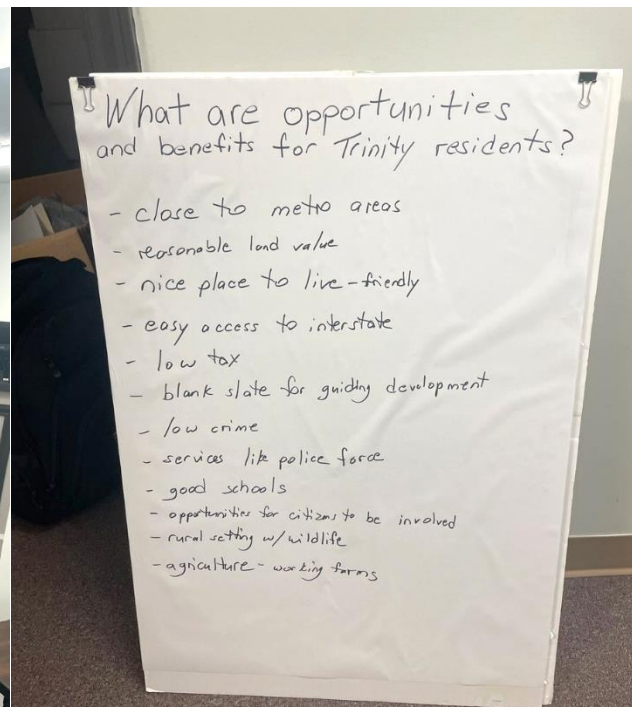 What are opportunities
and benefits for Trinity residents?
- close to metro areas
- reasonable land value
- nice place to live - friendly
- easy access to interstate
- low tax
- blank slate for guiding development
- low crime
- services like police force
- good schools
- opportunities for citizens to be involved
- rural setting w/ wildlife
- agriculture - working farms